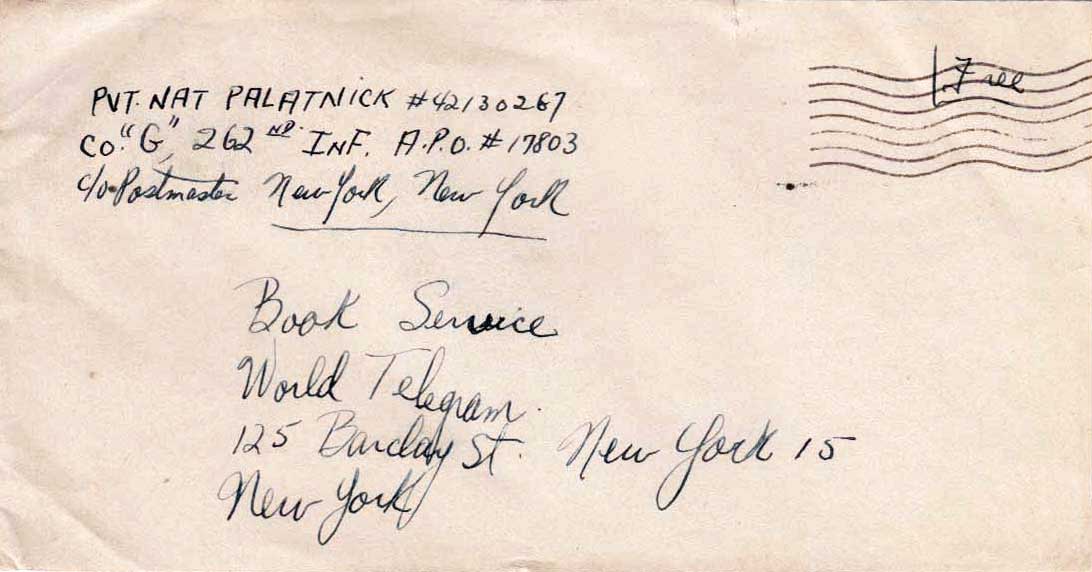 Free
PVT. NAT PALATNICK #42130267
CO. "G", 262ND. INF. A.P.O. #17803
c/o Postmaster New York, New York
Book Service
World Telegram.
125 Barclay St. New York 15
New York